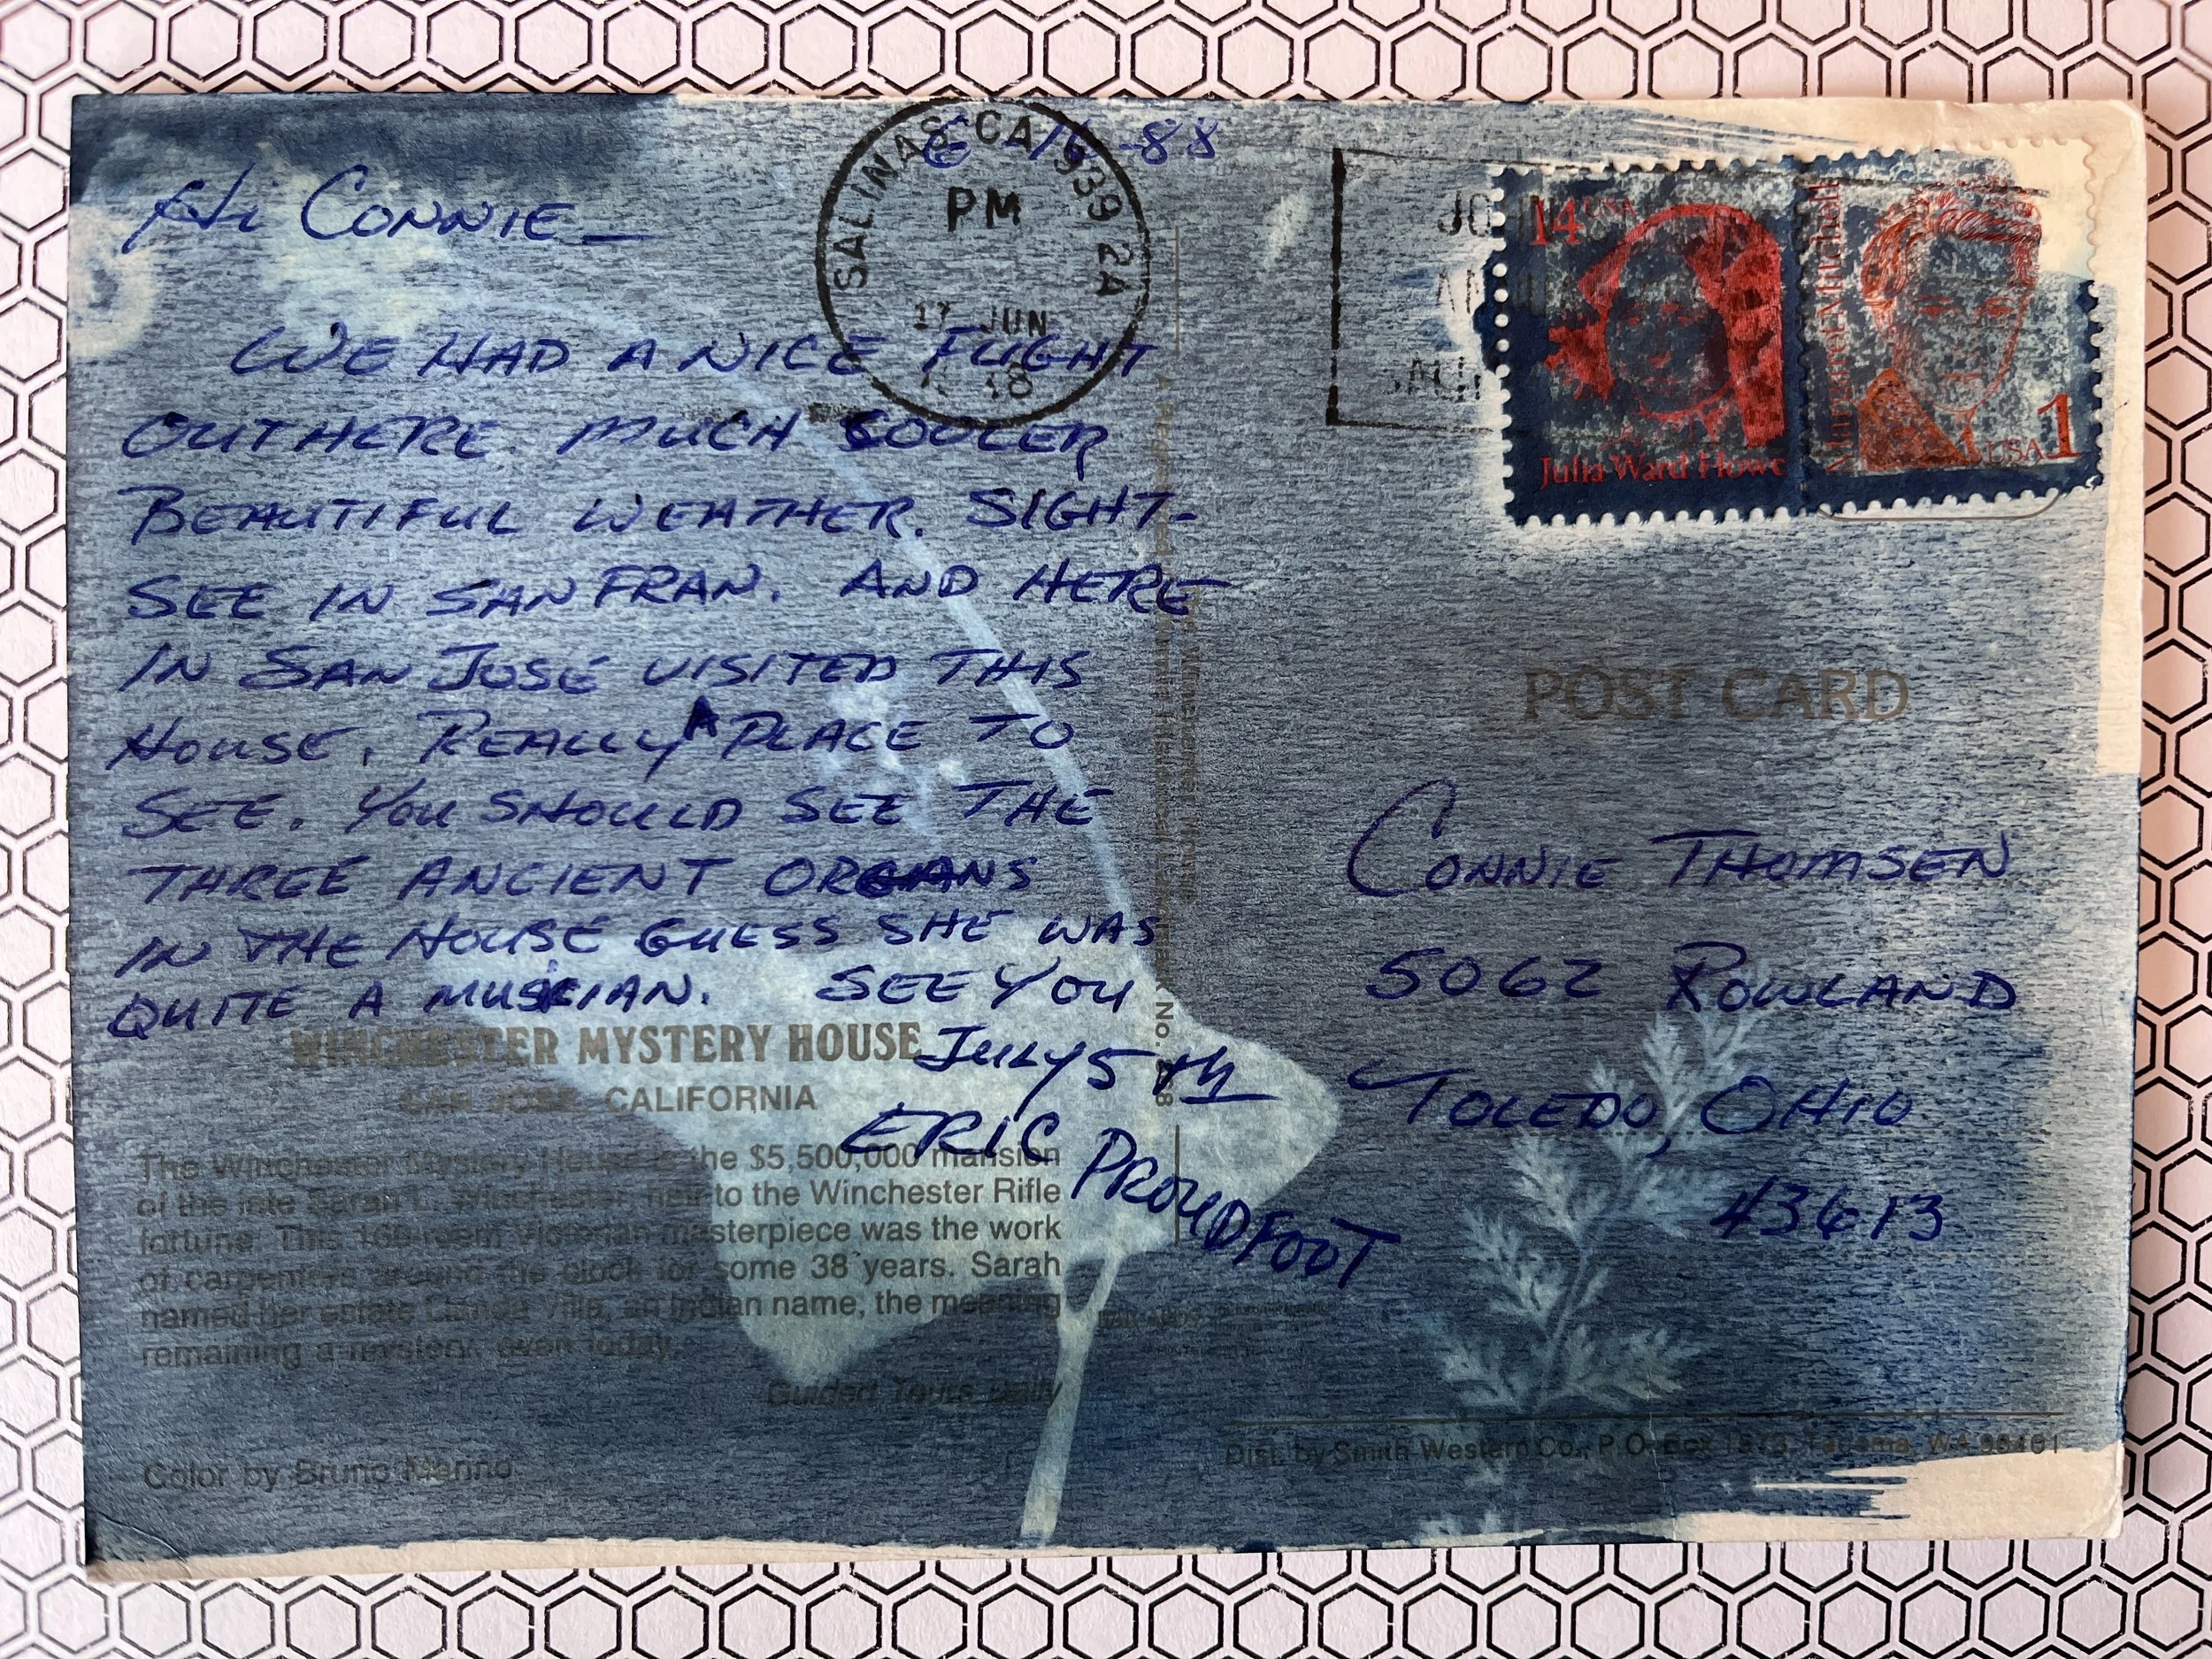 6-16-88
Hi CONNIE—
WE HAD A NICE FLIGHT
OUT HERE. MUCH COOLER
BEAUTIFUL WEATHER. SIGHT-
SEE IN SAN FRAN. AND HERE
IN SAN JOSE VISITED THIS
HOUSE. REALLY A PLACE TO
SEE. YOU SHOULD SEE THE
THREE ANCIENT ORGANS
IN THE HOUSE GUESS SHE WAS
QUITE A MUSICIAN. SEE YOU
JULY 5th
ERIC PROUDFOOT
WINCHESTER MYSTERY HOUSE
SAN JOSE, CALIFORNIA
The Winchester Mystery House is the $5,500,000 mansion
of the late Sarah L. Winchester, heir to the Winchester Rifle
fortune. This 160-room Victorian masterpiece was the work
of carpenters around the clock for some 38 years. Sarah
named her estate Llanda Villa, an Indian name, the meaning
remaining a mystery, even today.
Guided Tours Daily
Color by Bruno Marino
SALINAS CA 939 2A
PM
17 JUN
14 USA
Julia Ward Howe
Margaret Mitchell
USA 1
POST CARD
CONNIE THOMSEN
5062 ROWLAND
TOLEDO, OHIO
43613
Dist. by Smith Western Co., P.O. Box Tacoma, WA 98401